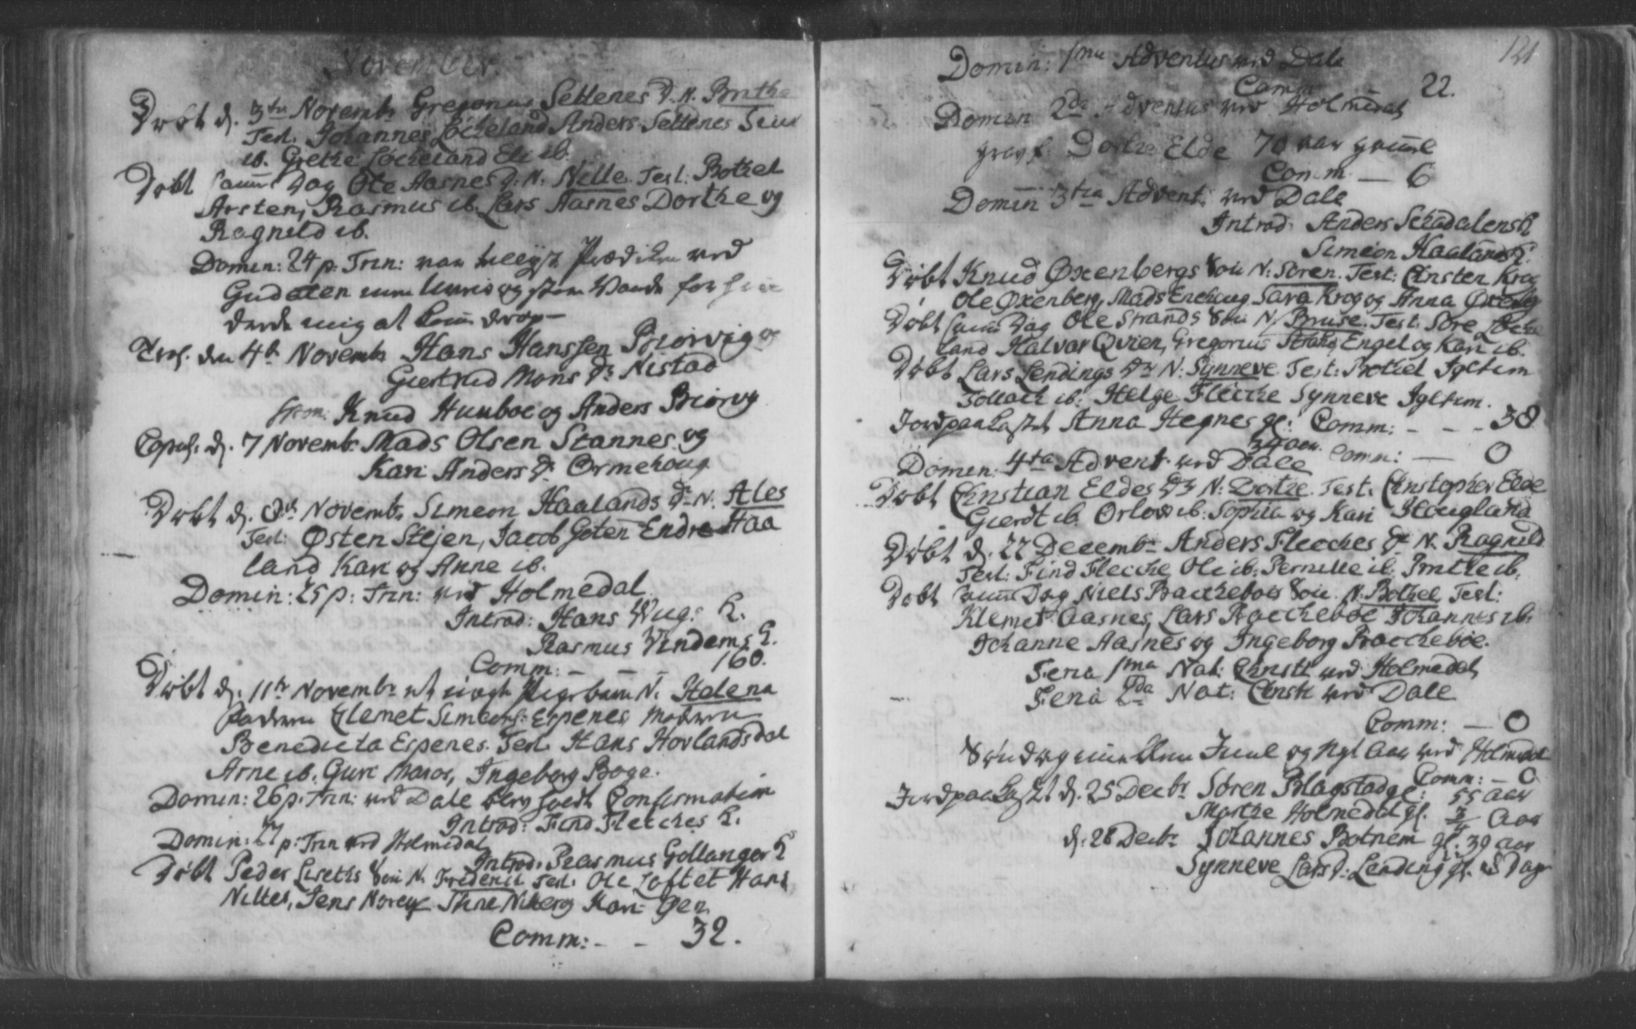 November.
Døbt d. 3tie Novemb: Gregorius Settenes D. N. Brithe
Test. Johannes Løkeland Anders Settenes
ib. Grethe Løckeland Eli ib.
Døbt samme Dag Ole Aasnes D. N. Nille. Test: Bothel
Arsten, Rasmus ib. Lars Aasnes Dorthe og
Ragnild ib.
Domin: 24 p. Trin: var Prædiken ved
Gudalen men og for
mig at
Trol. den 4de Novemb: Hans Hanssen Biørvig og
Giertrud Mons D. Nistad
Knud Hunboe og Anders Biørvig
Copul. d. 7 Novemb: Mads Olsen Stannes og
Kari Anders D. Ormehoug
Døbt d. Novemb: Simeon Haalands D. N. Ales
Test: Østen Stejen, Jacob Goten Endre Haa
land Kari og Anne ib.
Domin: 25 p: Trin: ved Holmedal
Introd: Hans Wug: K.
Rasmus Vindems K.
Comm: - - 160.
Døbt d. 11te Novemb: et Pigebarn N. Helena
Faderen Clemet Simons: Espenes Moderen
Benedicta Espenes. Test Hans Hovlandsdal
Arne ib. Guri Ingeborg Boge.
Domin: 26 p. Trin: ved Dale Confirmation
Introd: Find Fleches K.
Domin: 27 p: Trin ved Holmedal
Introd: Rasmus Gollanger K
Døbt Peder Liseths Søn N. Friderich Test: Ole Loftet Hans
Nilles, Jens Stine og Kari
Comm: - - 32.
121
Domin: 1ma Adventus ved Dale
Comm 22.
Domin 2da Adventus ved Holmedal
Dorthe Elde 70 aar gammel
Comm — 6
Domin 3tia Advent: ved Dale
Introd: Anders K
Simeon Haalands K.
Døbt Knud Oxenbergs Søn N: Soren. Test: Christen Krog
Ole Oxenberg, Mads Enehoug Sara Krog og Anna Oxenberg
Døbt samme Dag Ole Strands Søn N. Bruse. Test. Sore Løcke
land Halvor Qvien, Gregorius Strand, Engel og Kari ib.
Døbt Lars Lendings D. N: Synneve. Test: Bothel Igletun
Tollach ib: Helge Fleche Synneve Igletun.
Jordpaakastet Anna Hegnes gl: Comm: - - - 38
39 aar. Comm: — 0
Domin: 4ta Advent ved Dale
Døbt Christian Eldes D. N: Dorthe. Test: Christopher Elde
Gierdt ib. Orlow ib: Sophia og Kari Hougland
Døbt d. 22 Decemb: Anders Fleches D. N. Ragnild
Test: Find Fleche Ole ib: Pernille ib: Brithe ib:
Døbt samme Dag Niels Backeboes Søn N. Bothel Test:
Klemet Aasnes, Lars Backeboe Johannes ib:
Johanne Aasnes og Ingeborg Backeboe.
Feria 1ma Nat: Christi ved Holmedal
Feria 2da Nat: Christi ved Dale
Comm: — 0
Søndag mellem Juul og Nyt Aar ved Holmedal
Comm: - 0
Jordpaakastet d. 25 Decbr Søren Blagstad gl: 55 aar
Marthe Holmedal gl. 3/4 Aar
d. 28 Decbr Johannes Botnem gl. 39 aar
Synneve Larsd: Lending gl. 8 Dage